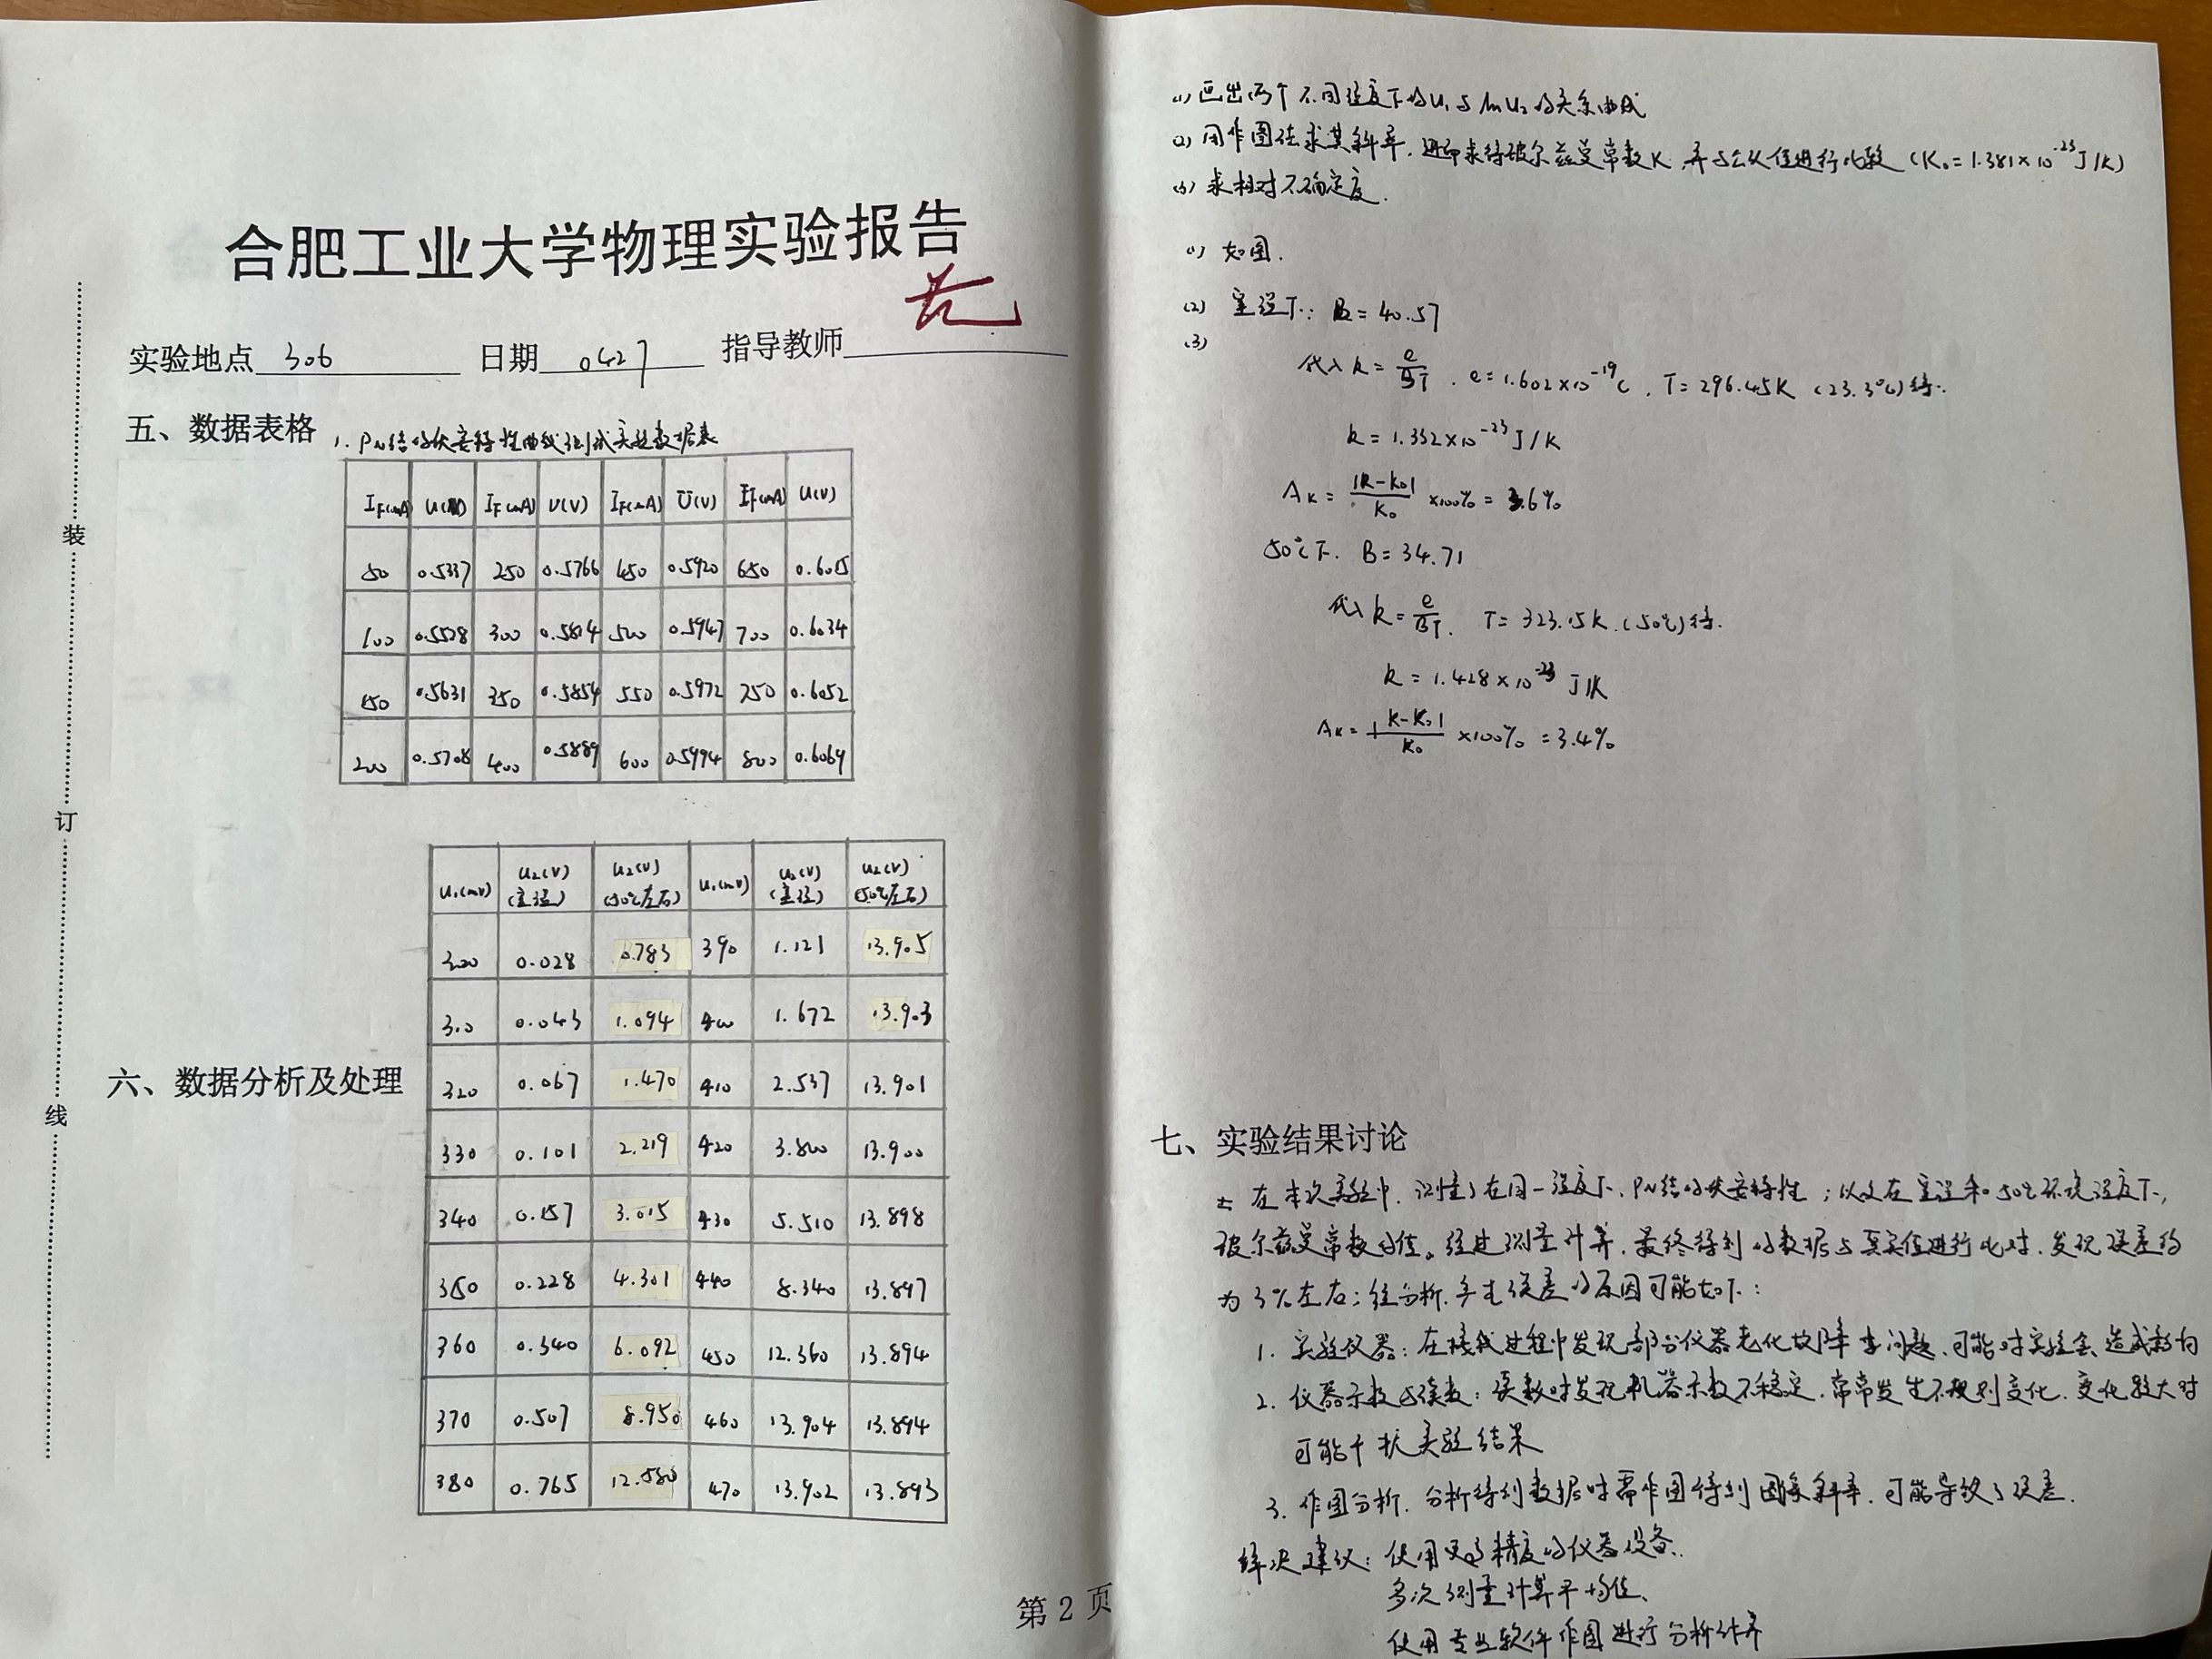 合肥工业大学物理实验报告
实验地点 306 日期 0427 指导教师
五、数据表格 1. PN结的伏安特性曲线测试实验数据表
IF(mA) U(V) IF(mA) U(V) IF(mA) U(V) IF(mA) U(V)
50 0.5337 250 0.5766 450 0.5920 650 0.6015
100 0.5528 300 0.5814 500 0.5947 700 0.6034
150 0.5631 350 0.5854 550 0.5972 750 0.6052
200 0.5708 400 0.5889 600 0.5994 800 0.6069
U1(mV) U2(V)(室温) U2(V)(50℃左右) U1(mV) U2(V)(室温) U2(V)(50℃左右)
300 0.028 0.783 390 1.121 13.905
310 0.043 1.094 400 1.672 13.903
六、数据分析及处理
320 0.067 1.470 410 2.537 13.901
330 0.101 2.219 420 3.800 13.900
340 0.157 3.015 430 5.510 13.898
350 0.228 4.301 440 8.340 13.897
360 0.340 6.092 450 12.360 13.894
370 0.507 8.950 460 13.904 13.894
380 0.765 12.580 470 13.902 13.893
第 2 页
装
订
线
(1) 画出两个不同温度下的U1与lnU2的关系曲线
(2) 用作图法求其斜率,进而求得玻尔兹曼常数K,并与公认值进行比较 (K0=1.381×10⁻²³J/K)
(3) 求相对不确定度.
(1) 如图.
(2) 室温下: B=40.57
(3)
代入k=e/BT. e=1.602×10⁻¹⁹C, T=296.45K (23.3℃)得:
k=1.332×10⁻²³J/K
AK=|K-K0|/K0 ×100%=3.6%
50℃下. B=34.71
代入k=e/BT. T=323.15K.(50℃)得.
k=1.428×10⁻²³ J/K
AK=|K-K0|/K0 ×100%=3.4%
七、实验结果讨论
在本次实验中,测量了在同一温度下,PN结的伏安特性;以及在室温和50℃环境温度下,
玻尔兹曼常数的值。经过测量计算,最终得到的数据与真实值进行比对,发现误差约
为3%左右;经分析,产生误差的原因可能如下:
1. 实验仪器:在接线过程中发现部分仪器老化故障等问题,可能对实验会造成影响
2. 仪器示数与读数:读数时发现机器示数不稳定,常常发生不规则变化,变化较大时
可能干扰实验结果
3. 作图分析. 分析得到数据时需作图得到图象斜率,可能导致了误差.
解决建议:使用更高精度的仪器设备.
多次测量计算平均值、
使用专业软件作图进行分析计算